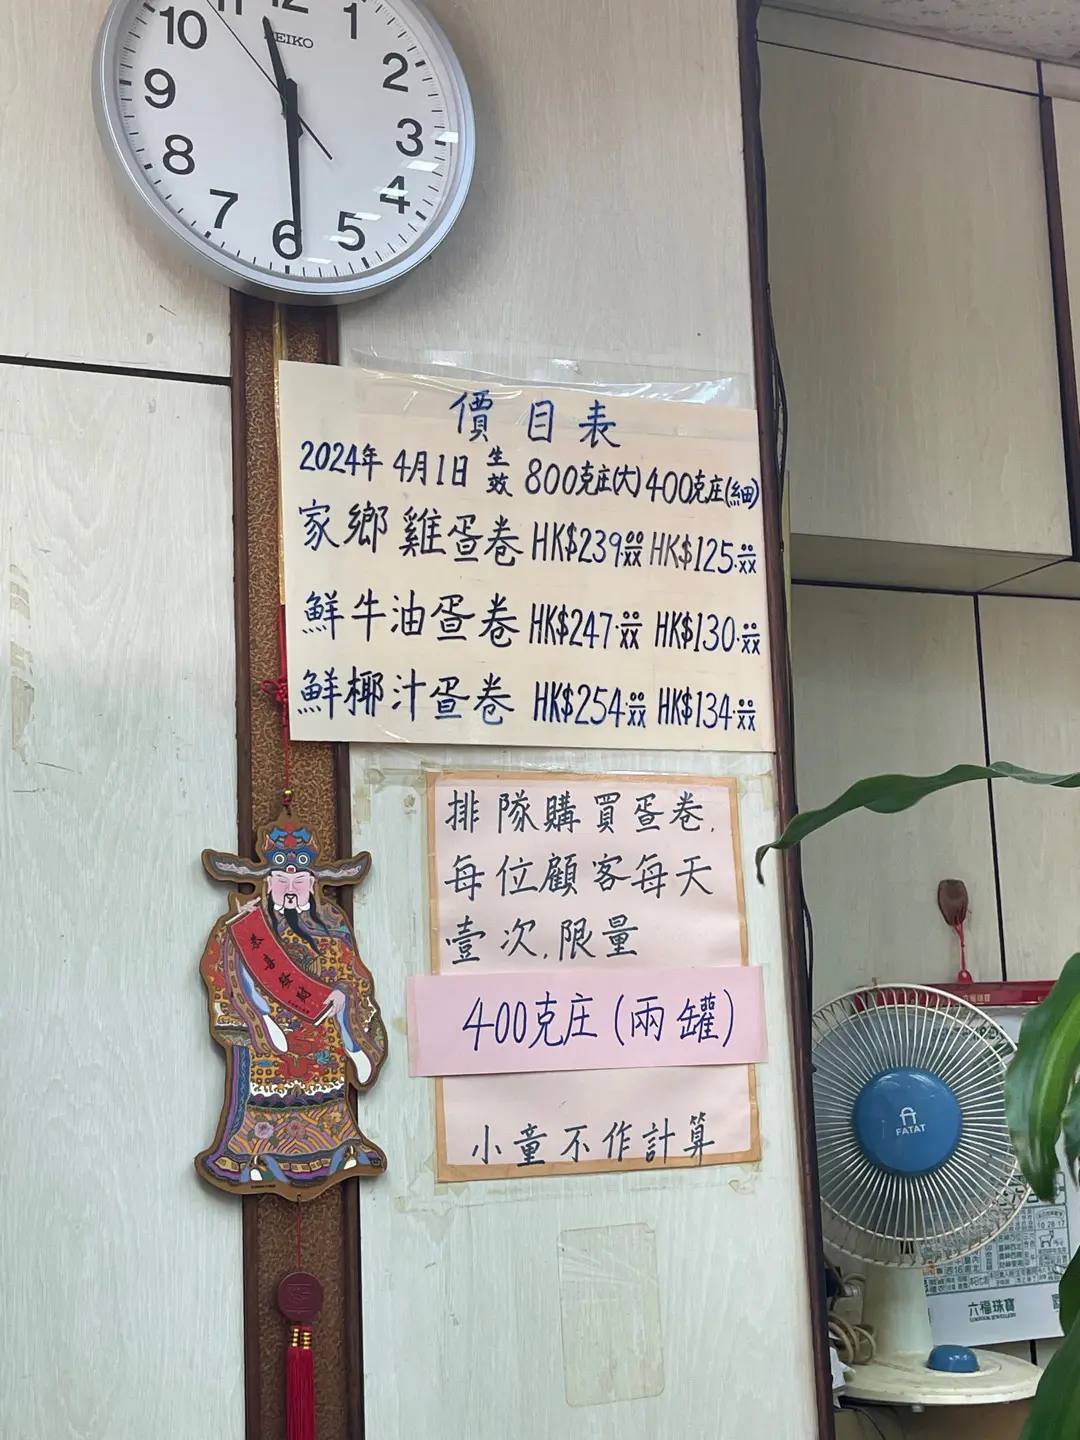 10
11
12
1
2
3
4
5
6
7
8
9
SEIKO
價目表
2024年 4月1日 生效 800克庄(大) 400克庄(細)
家鄉雞蛋卷 HK$239.00 HK$125.00
鮮牛油蛋卷 HK$247.00 HK$130.00
鮮椰汁蛋卷 HK$254.00 HK$134.00
排隊購買蛋卷,
每位顧客每天
壹次,限量
400克庄(兩罐)
小童不作計算
恭喜發財
FATAT
六福珠寶
10 28 17
六福珠寶